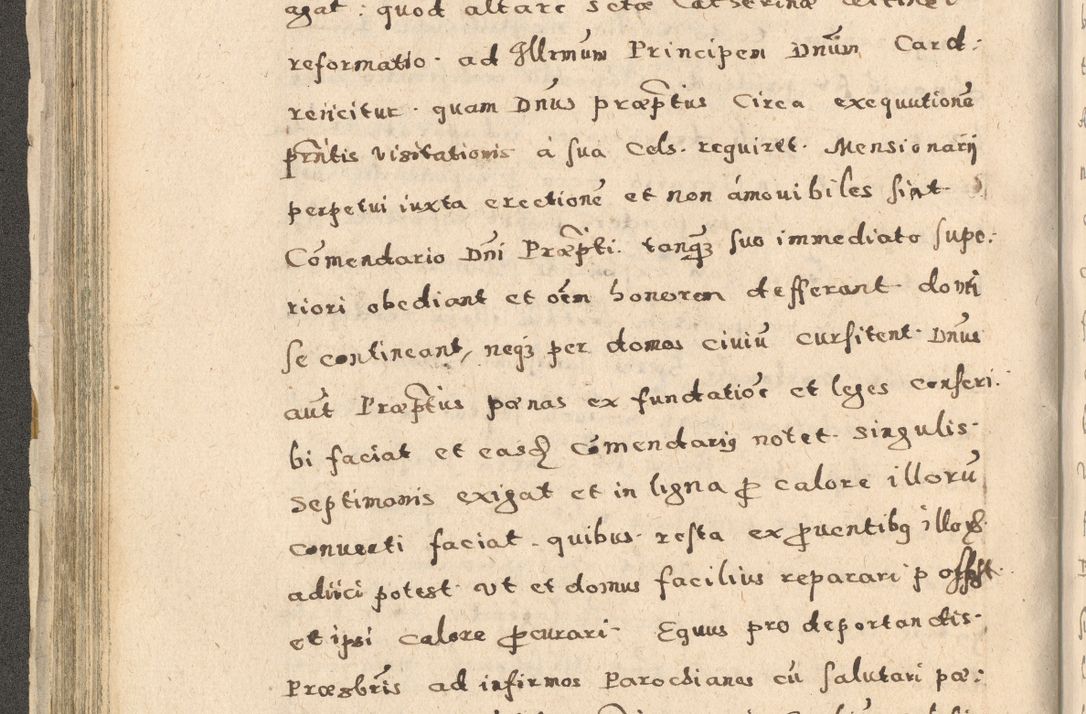 agat: quod altare Sctæ Catherinæ
reformatio. ad Illrmum Principem Dnūm Card:
reiicitur. quam Dnūs præptūs Circa exequutionē
prntis visitationis a sua Cels. requiret. Mensionarij
perpetui iuxta erectionē et non amouibiles sint.
Comendario Dni Præpti. tanq̄z suo immediato supe:
riori obediant et oēm honorem defferant domi
se contineant, neqz per domos ciuiū cursitent. Dnūs
aūt Præptūs pœnas ex fundatioē et leges conscri:
bi faciat et easd Comendarijs notet. Singulis
Septimanis exigat et in ligna p calore illorū
conuerti faciat. quibus. resta ex prouentibq illorȝ
adiici potest. vt et domus facilius reparari p
et ipsi calore pcurari. Equus pro deportandis.
Præsbris ad infirmos Parochianos cū salutari pœ: